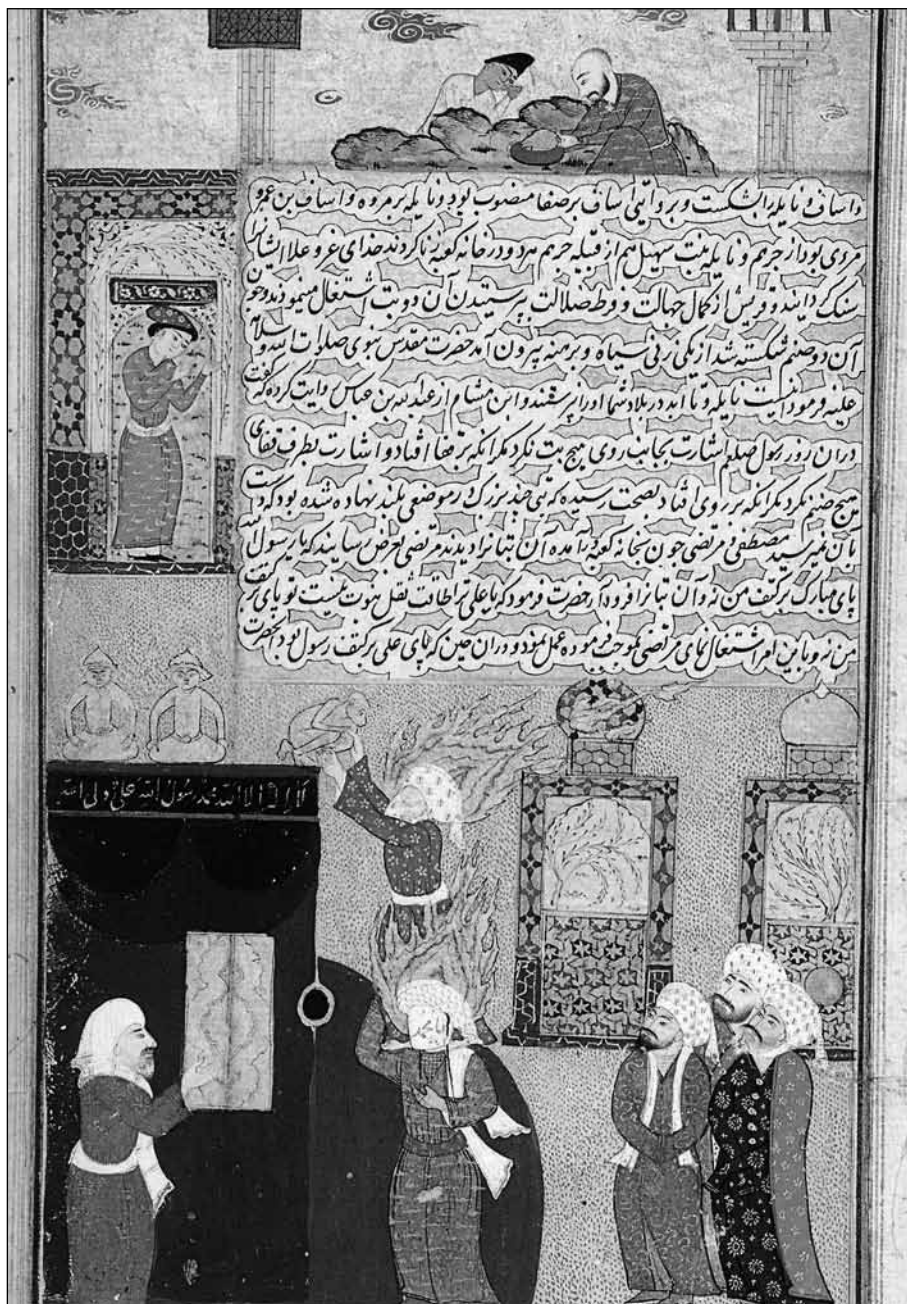 و اساف و نایله را بشکست و بروایتی اساف بر صفا منصوب بود و نایله بر مروه و اساف بن عمرو
مردی بود از جرهم و نایله بنت سهیل هم از قبیله جرهم هردو در خانه کعبه زنا کردند خدای عز و علا ایشانرا
سنک کردانید و قریش از کمال جهالت و فرط ضلالت به پرستیدن آن دو بت اشتغال مینمودند و چون
آن دو صنم شکسته شد از یکی زنی سیاه و برهنه بیرون آمد حضرت مقدس نبوی صلوات الله و سلامه
علیه فرمود اینست نایله و تا ابد در بلاد شما او را نپرستند و ابن هشام از عبدالله بن عباس روایت کرده که گفت
دران روز رسول صلعم اشارت بجانب روی هیچ بت نکرد مکر انکه بر قفا افتاد و اشارت بطرف قفای
هیچ صنم نکرد مکر انکه بر روی افتاد بصحت رسیده که بتی چند بزرک در موضعی بلند نهاده شده بود که دست
بان نمیرسید مصطفی و مرتضی چون بخانه کعبه در آمده آن بتانرا دیدند مرتضی بعرض رسانید که یا رسول الله
پای مبارک بر کتف من نه و آن بتانرا فرود آر حضرت فرمود که یا علی ترا طاقت ثقل نبوت نیست تو پای بر کتف
من نه و باین امر اشتغال نمای مرتضی بموجب فرموده عمل نمود و دران حین که پای علی بر کتف رسول بود آنحضرت
لا اله الا الله محمد رسول الله علی ولی الله